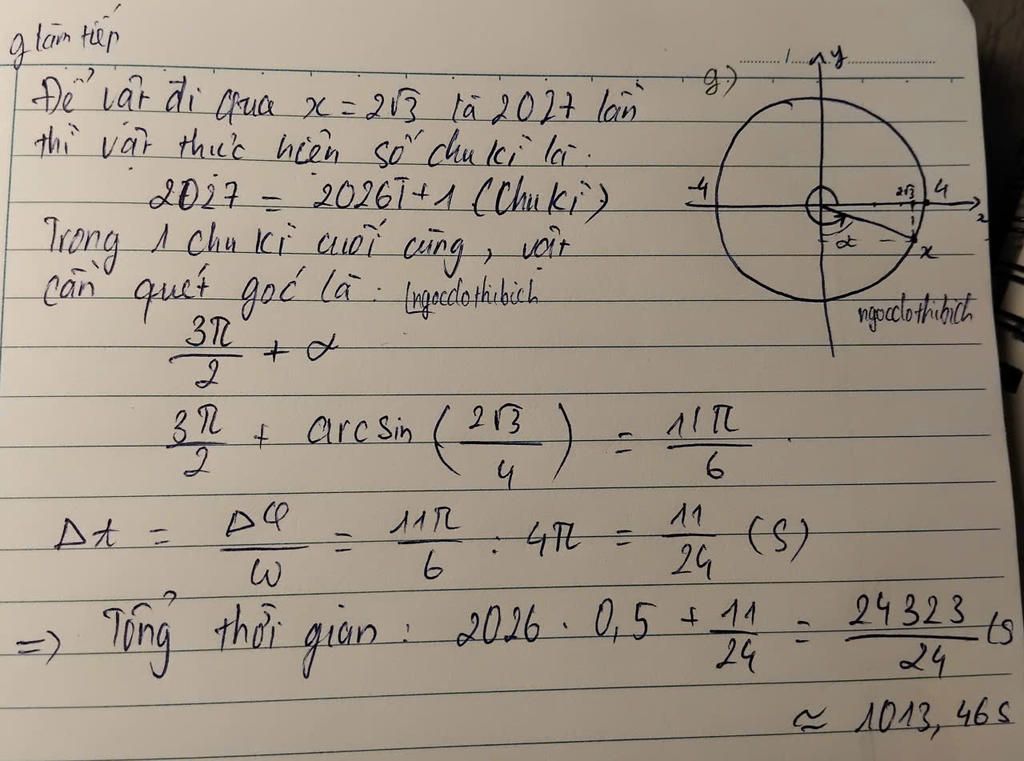 g làm tiếp
Để vật đi qua x = 2√3 là 2027 lần
thì vật thực hiện số chu kì là:
2027 = 2026T + 1 (Chu kì)
Trong 1 chu kì cuối cùng, vật
cần quét góc là: ngocdothibich
3π/2 + α
3π/2 + arcsin (2√3/4) = 11π/6.
Δt = Δφ/ω = 11π/6 : 4π = 11/24 (s)
=> Tổng thời gian: 2026 . 0,5 + 11/24 = 24323/24 (s
≈ 1013,46s
g)
y
-4
2√3
4
x
α
x
ngocdothibich